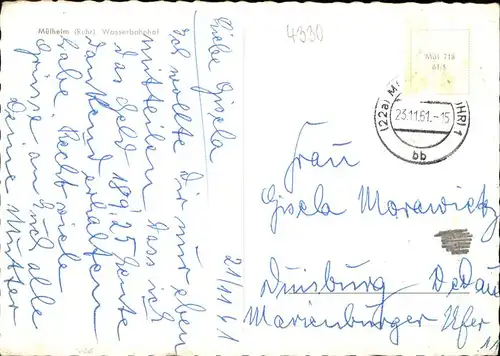 Mülheim (Ruhr) Wasserbahnhof
4330
Mül 218
61/5
(22a) M
23.11.61.-15
(HR) 1
bb
21/11 61
Liebe Gisela
Ich wollte Dir nur eben
mitteilen dass ich
das Geld 189,25 heute
dankend erhalten
habe. Recht viele
Grüsse an Euch alle
Deine Mutter
Frau
Gisela Morawietz
Duisburg
Marienburger Ufer
11